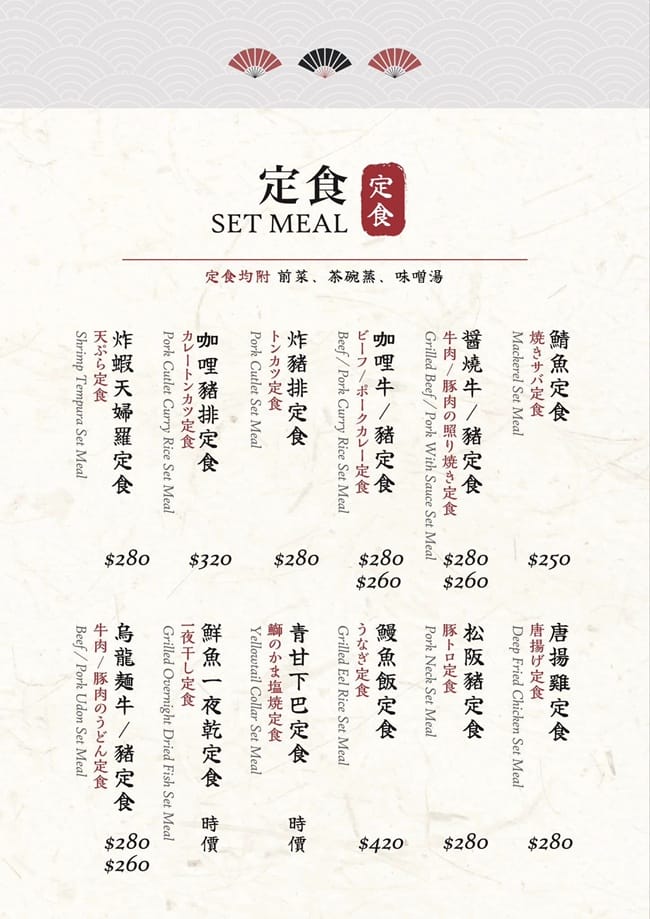 定食
SET MEAL
定食
定食均附 前菜、茶碗蒸、味噌湯
鯖魚定食
焼きサバ定食
Mackerel Set Meal
$250
醬燒牛/豬定食
牛肉/豚肉の照り焼き定食
Grilled Beef/Pork With Sauce Set Meal
$280
$260
咖哩牛/豬定食
ビーフ/ポークカレー定食
Beef/Pork Curry Rice Set Meal
$280
$260
炸豬排定食
トンカツ定食
Pork Cutlet Set Meal
$280
咖哩豬排定食
カレートンカツ定食
Pork Cutlet Curry Rice Set Meal
$320
炸蝦天婦羅定食
天ぷら定食
Shrimp Tempura Set Meal
$280
唐揚雞定食
唐揚げ定食
Deep Fried Chicken Set Meal
$280
松阪豬定食
豚トロ定食
Pork Neck Set Meal
$280
鰻魚飯定食
うなぎ定食
Grilled Eel Rice Set Meal
$420
青甘下巴定食
鰤のかま塩焼定食
Yellowtail Collar Set Meal
時價
鮮魚一夜乾定食
一夜干し定食
Grilled Overnight Dried Fish Set Meal
時價
烏龍麵牛/豬定食
牛肉/豚肉のうどん定食
Beef/Pork Udon Set Meal
$280
$260